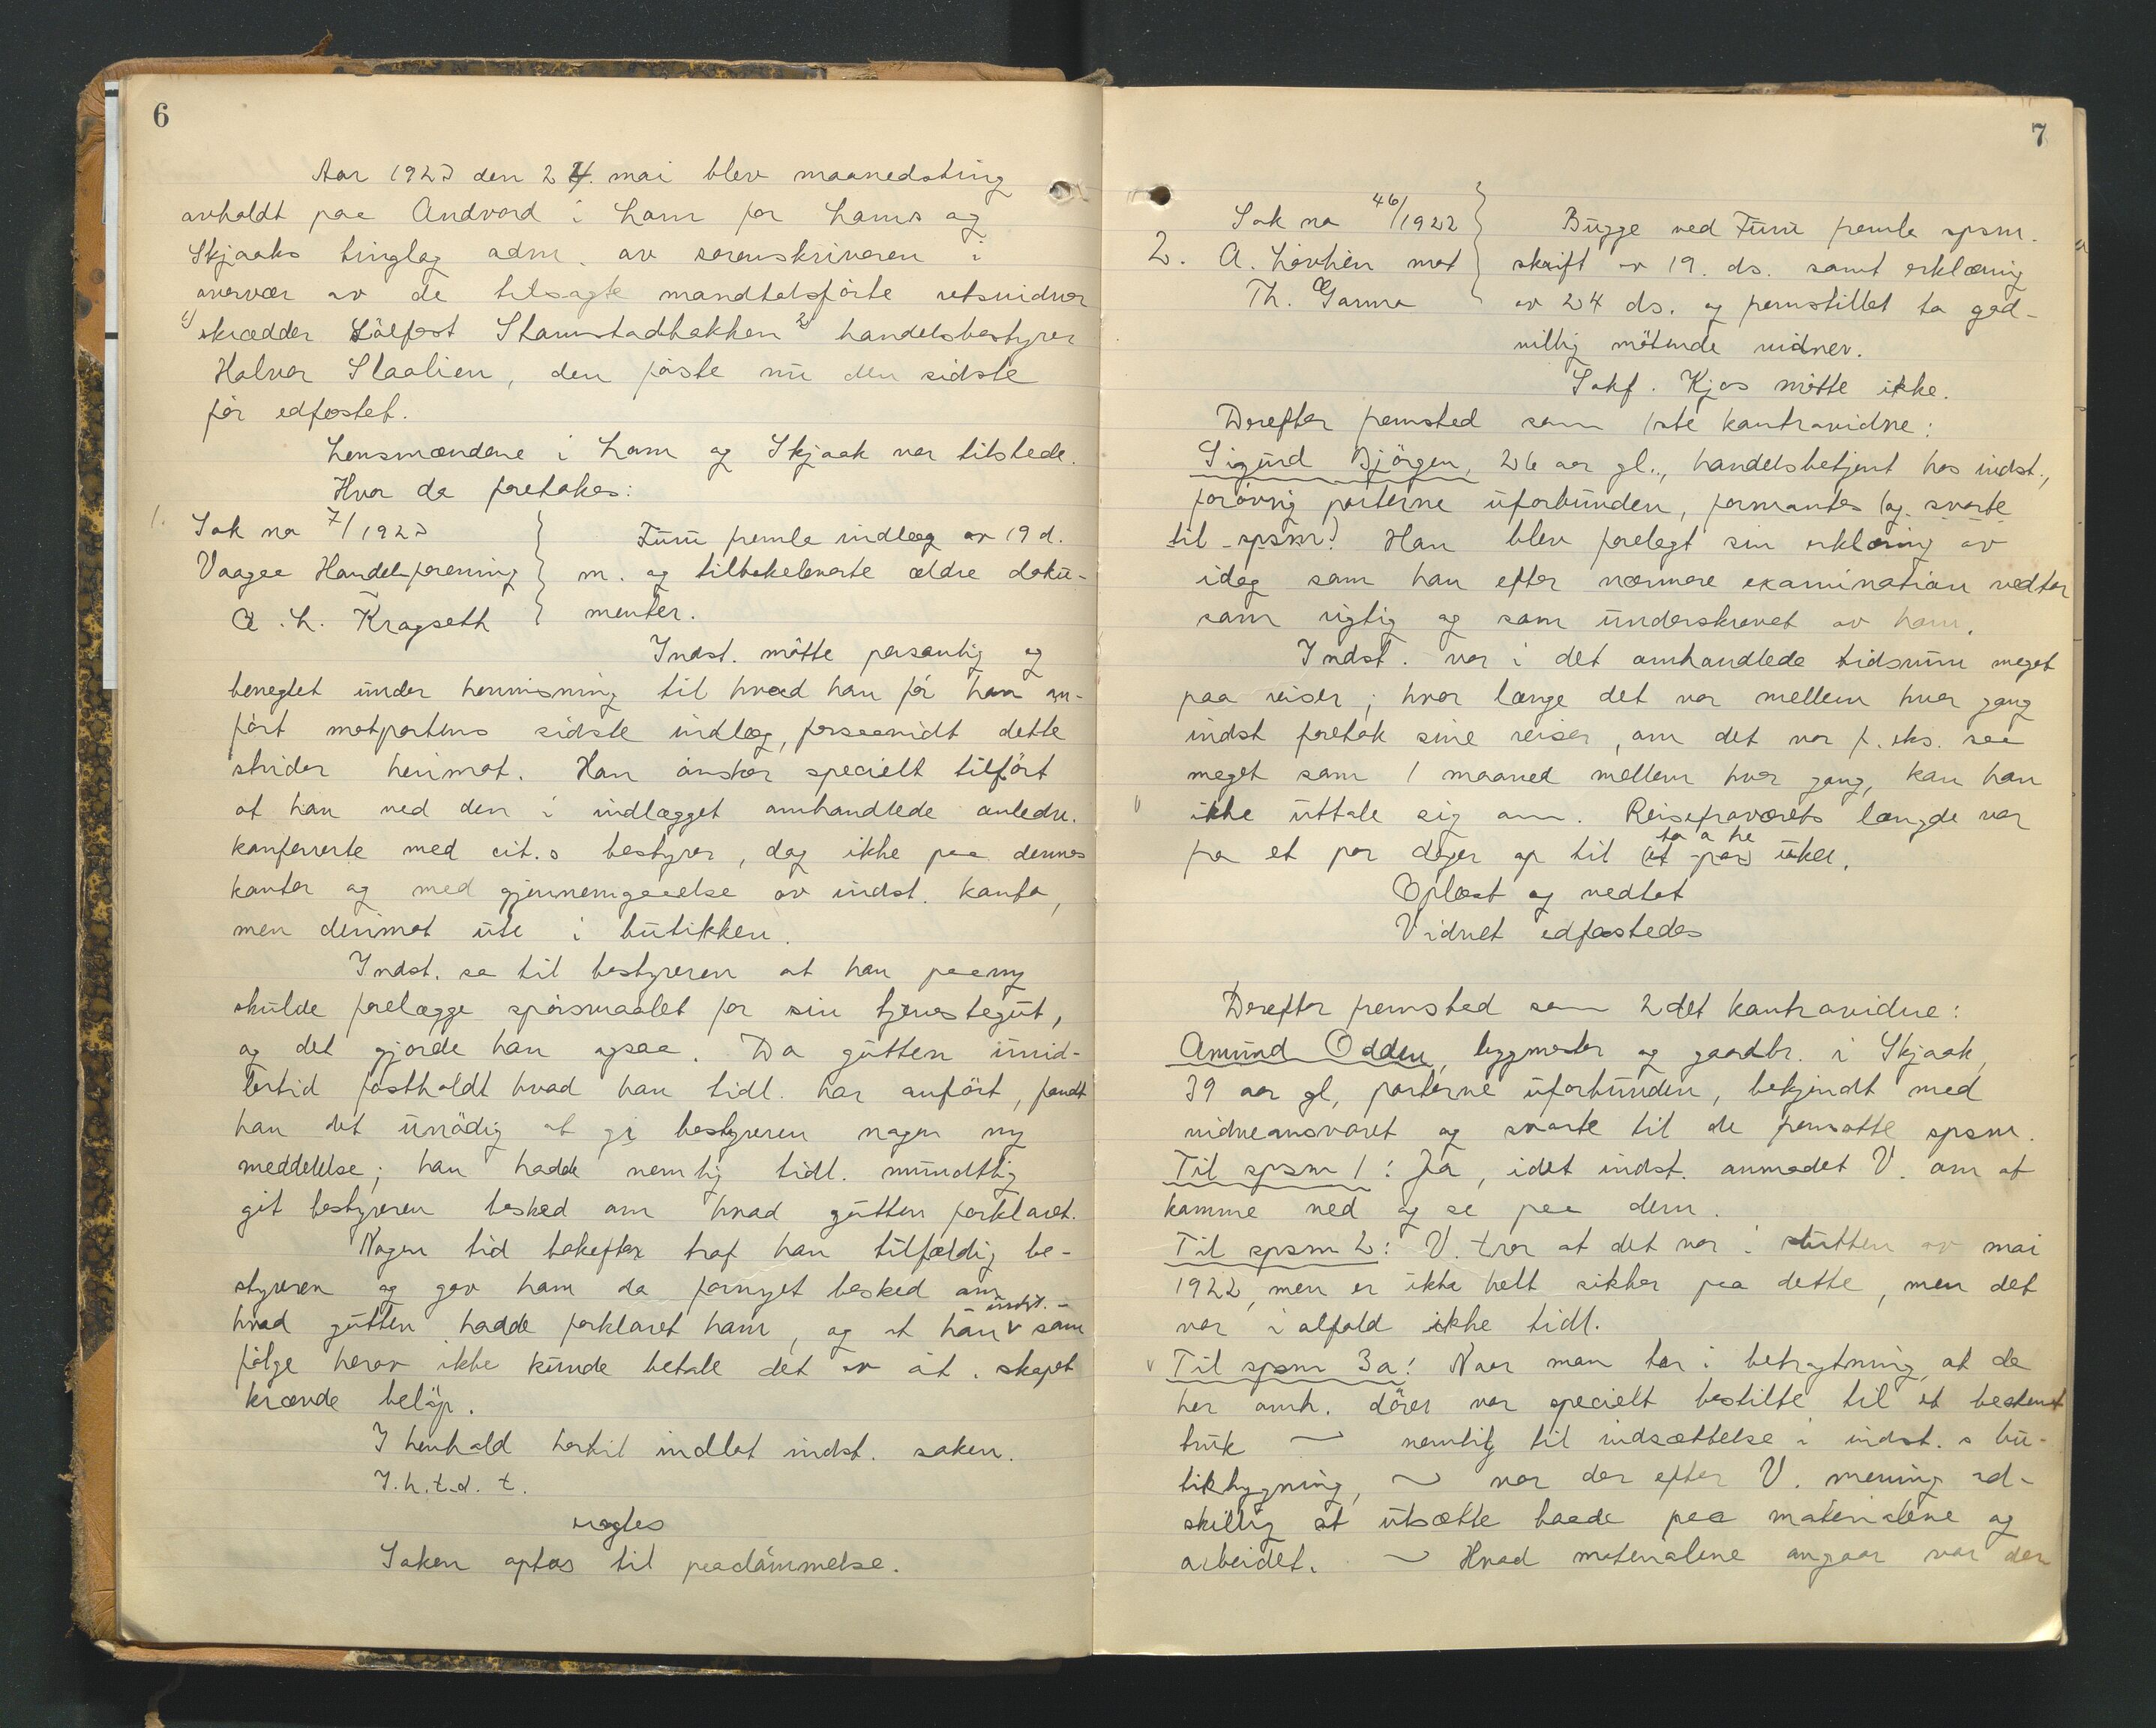 6
Aar 1923 den 24. mai blev maanedsting
avholdt paa Andvord i Lom for Loms og
Skjaaks tinglag adm. av sorenskriveren i
overvær av de tilsagte mandtalsförte retsvidner
1) skrædder Sålfest Stamstadbakken 2) handelsbestyrer
Halvor Slaalien, den første nu den sidste
før edfæstet.
Lensmændene i Lom og Skjaak var tilstede.
Hvor da foretokes:
1. Sak no 7/1923
Vaagaa Handelsforening
O. L. Kragseth
Furu fremla indlæg av 19 d.
m. og tilbakeleverte ældre doku-
menter.
Indst. møtte personlig og
benegtet under henvisning til hvad han før har an-
ført motpartens sidste indlæg, forsaavidt dette
strider herimot. Han ønsker specielt tilført
at han ved den i indlægget omhandlede anledn.
konfererte med cit.s bestyrer, dog ikke paa dennes
kontor og med gjennemgaaelse av indst. konto,
men derimot ute i butikken.
Indst. sa til bestyreren at han paany
skulde forelægge spørsmaalet for sin tjenestegut,
og det gjorde han ogsaa. Da gutten imid-
lertid fastholdt hvad han tidl. har anført, fandt
han det unødig at gi bestyreren nogen ny
meddelelse; han hadde nemlig tidl. mundtlig
git bestyreren besked om hvad gutten forklaret.
Nogen tid bakefter traf han tilfældig be-
styreren og gav ham da fornyet besked om
hvad gutten hadde forklaret ham, og at han - indst. - som
følge herav ikke kunde betale det av cit. skapet
krævde beløp.
I henhold hertil indlot indst. saken.
I.h.t.d. t.
avsagdes
Saken optas til paadømmelse.
7
2. Sak no 46/1922
A. Løvhen mot
Th. Garmo
Bugge ved Furu fremla spsm.
skrift av 19. ds. samt erklæring
av 24 ds. og fremstillet to god-
villig møtende vidner.
Sakf. Kjos møtte ikke.
Derefter fremsted som 1ste kontravidne:
Sigurd Bjørgen, 26 aar gl., handelsbetjent hos indst.,
forøvrig parterne uforbunden, formantes (og svarte
til spsm) Han blev forelagt sin erklæring av
idag som han efter nærmere examination vedtar
som rigtig og som underskrevet av ham.
Indst. var i det omhandlede tidsrum meget
paa reiser; hvor længe det var mellem hver gang
indst foretok sine reiser, om det var f. eks. saa
meget som 1 maaned mellem hver gang, kan han
ikke uttale sig om. Reisefraværets længde var
fra et par dager op til (et par) to a tre uker.
Oplæst og vedtat
Vidnet edfæstedes
Derefter fremsted som 2det kontravidne:
Amund Odden, byggmester og gaardbr. i Skjaak,
39 aar gl, parterne uforbunden, bekjendt med
vidneansvaret og svarte til de fremsatte spsm.
Til spsm 1: Ja, idet indst. anmodet V. om at
komme ned og se paa dem.
Til spsm 2: V. tror at det var i slutten av mai
1922, men er ikke helt sikker paa dette, men det
var i alfald ikke tidl.
Til spsm 3a: Naar man tar i betragtning, at de
her omh. dører var specielt bestilte til et bestemt
bruk ~ nemlig til indsættelse i indst.s bu-
tikbygning, ~ var der efter V. mening ad-
skillig at utsætte baade paa materialene og
arbeidet. ~ Hvad materialene angaar var der